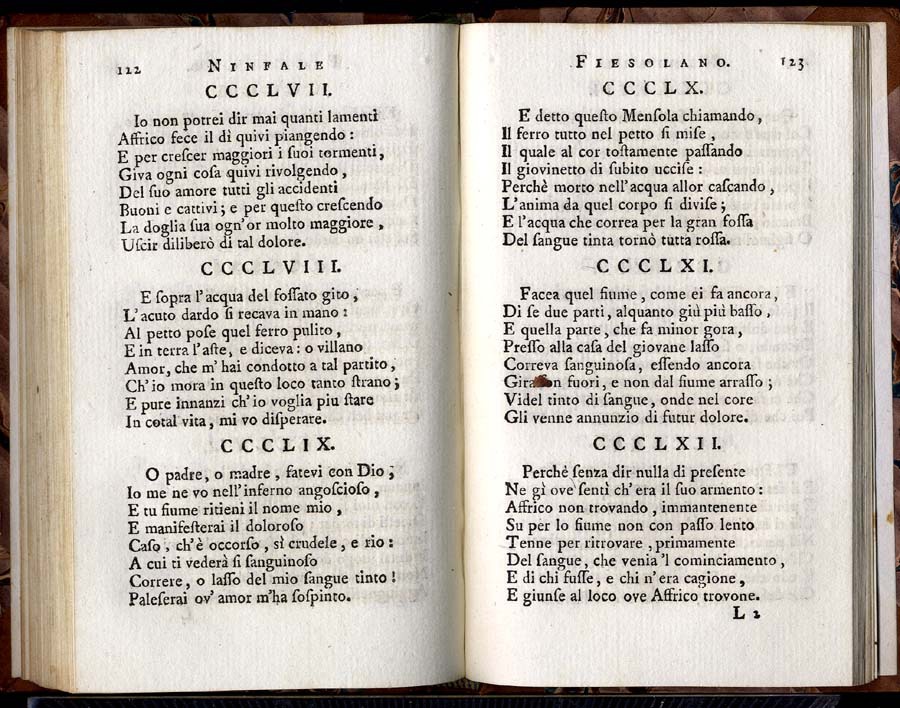 122 NINFALE
CCCLVII.
Io non potrei dir mai quanti lamenti
Affrico fece il dì quivi piangendo :
E per creſcer maggiori i ſuoi tormenti,
Giva ogni coſa quivi rivolgendo ,
Del ſuo amore tutti gli accidenti
Buoni e cattivi ; e per queſto creſcendo
La doglia ſua ogn' or molto maggiore ,
Uſcir diliberò di tal dolore.
CCCLVIII.
E ſopra l' acqua del foſſato gito ,
L' acuto dardo ſi recava in mano :
Al petto poſe quel ferro pulito ,
E in terra l' aſte , e diceva : o villano
Amor, che m' hai condotto a tal partito ,
Ch' io mora in queſto loco tanto ſtrano ;
E pure innanzi ch' io voglia piu ſtare
In cotal vita , mi vo diſperare.
CCCLIX.
O padre, o madre , fatevi con Dio ,
Io me ne vo nell' inferno angoſcioſo ,
E tu fiume ritieni il nome mio ,
E manifeſterai il doloroſo
Caſo , ch' è occorſo , sì crudele , e rio :
A cui ti vederà ſi ſanguinoſo
Correre, o laſſo del mio ſangue tinto !
Paleſerai ov' amor m'ha ſoſpinto.
FIESOLANO. 123
CCCLX.
E detto queſto Menſola chiamando ,
Il ferro tutto nel petto ſi miſe ,
Il quale al cor toſtamente paſſando
Il giovinetto di ſubito ucciſe :
Perchè morto nell' acqua allor caſcando ,
L' anima da quel corpo ſi diviſe ;
E l' acqua che correa per la gran foſſa
Del ſangue tinta tornò tutta roſſa.
CCCLXI.
Facea quel fiume , come ei fa ancora ,
Di ſe due parti, alquanto giù più baſſo ,
E quella parte , che fa minor gora ,
Preſſo alla caſa del giovane laſſo
Correva ſanguinoſa, eſſendo ancora
fuori , e non dal fiume arraſſo ;
Videl tinto di ſangue, onde nel core
Gli venne annunzio di futur dolore.
CCCLXII.
Perchè ſenza dir nulla di preſente
Ne gì ove ſentì ch' era il ſuo armento :
Affrico non trovando , immantenente
Su per lo fiume non con paſſo lento
Tenne per ritrovare , primamente
Del ſangue, che venia 'l cominciamento ,
E di chi fuſſe, e chi n' era cagione ,
E giunſe al loco ove Affrico trovone.
L 2